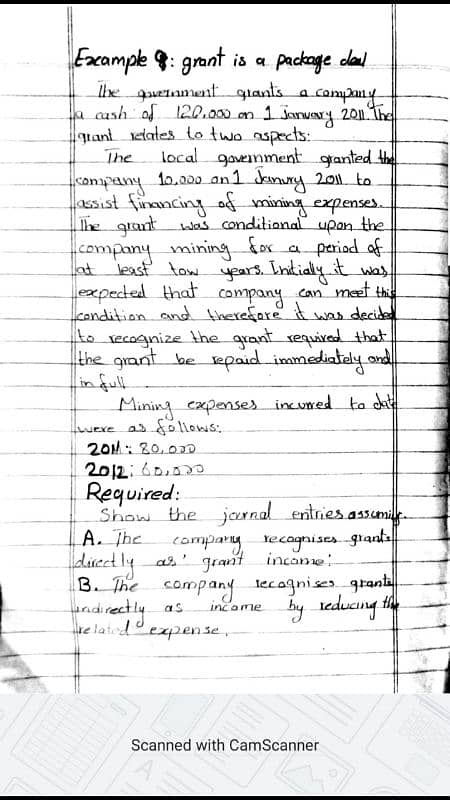 Example 9: grant is a package deal
The government grants a company
a cash of 120.000 on 1 January 2011. The
grant relates to two aspects:
The local government granted the
company 10.000 on 1 Janury 2011 to
assist financing of mining expenses.
The grant was conditional upon the
company mining for a period of
at least tow years. Initially it was
expected that company can meet this
condition and therefore it was decided
to recognize the grant required that
the grant be repaid immediately and
in full.
Mining expenses incurred to date
were as follows:
2011: 80.000
2012: 60.000
Required:
Show the journal entries assuming.
A. The company recognises grants
directly as 'grant income:
B. The company recognises grants
indirectly as income by reducing the
related expense.
Scanned with CamScanner